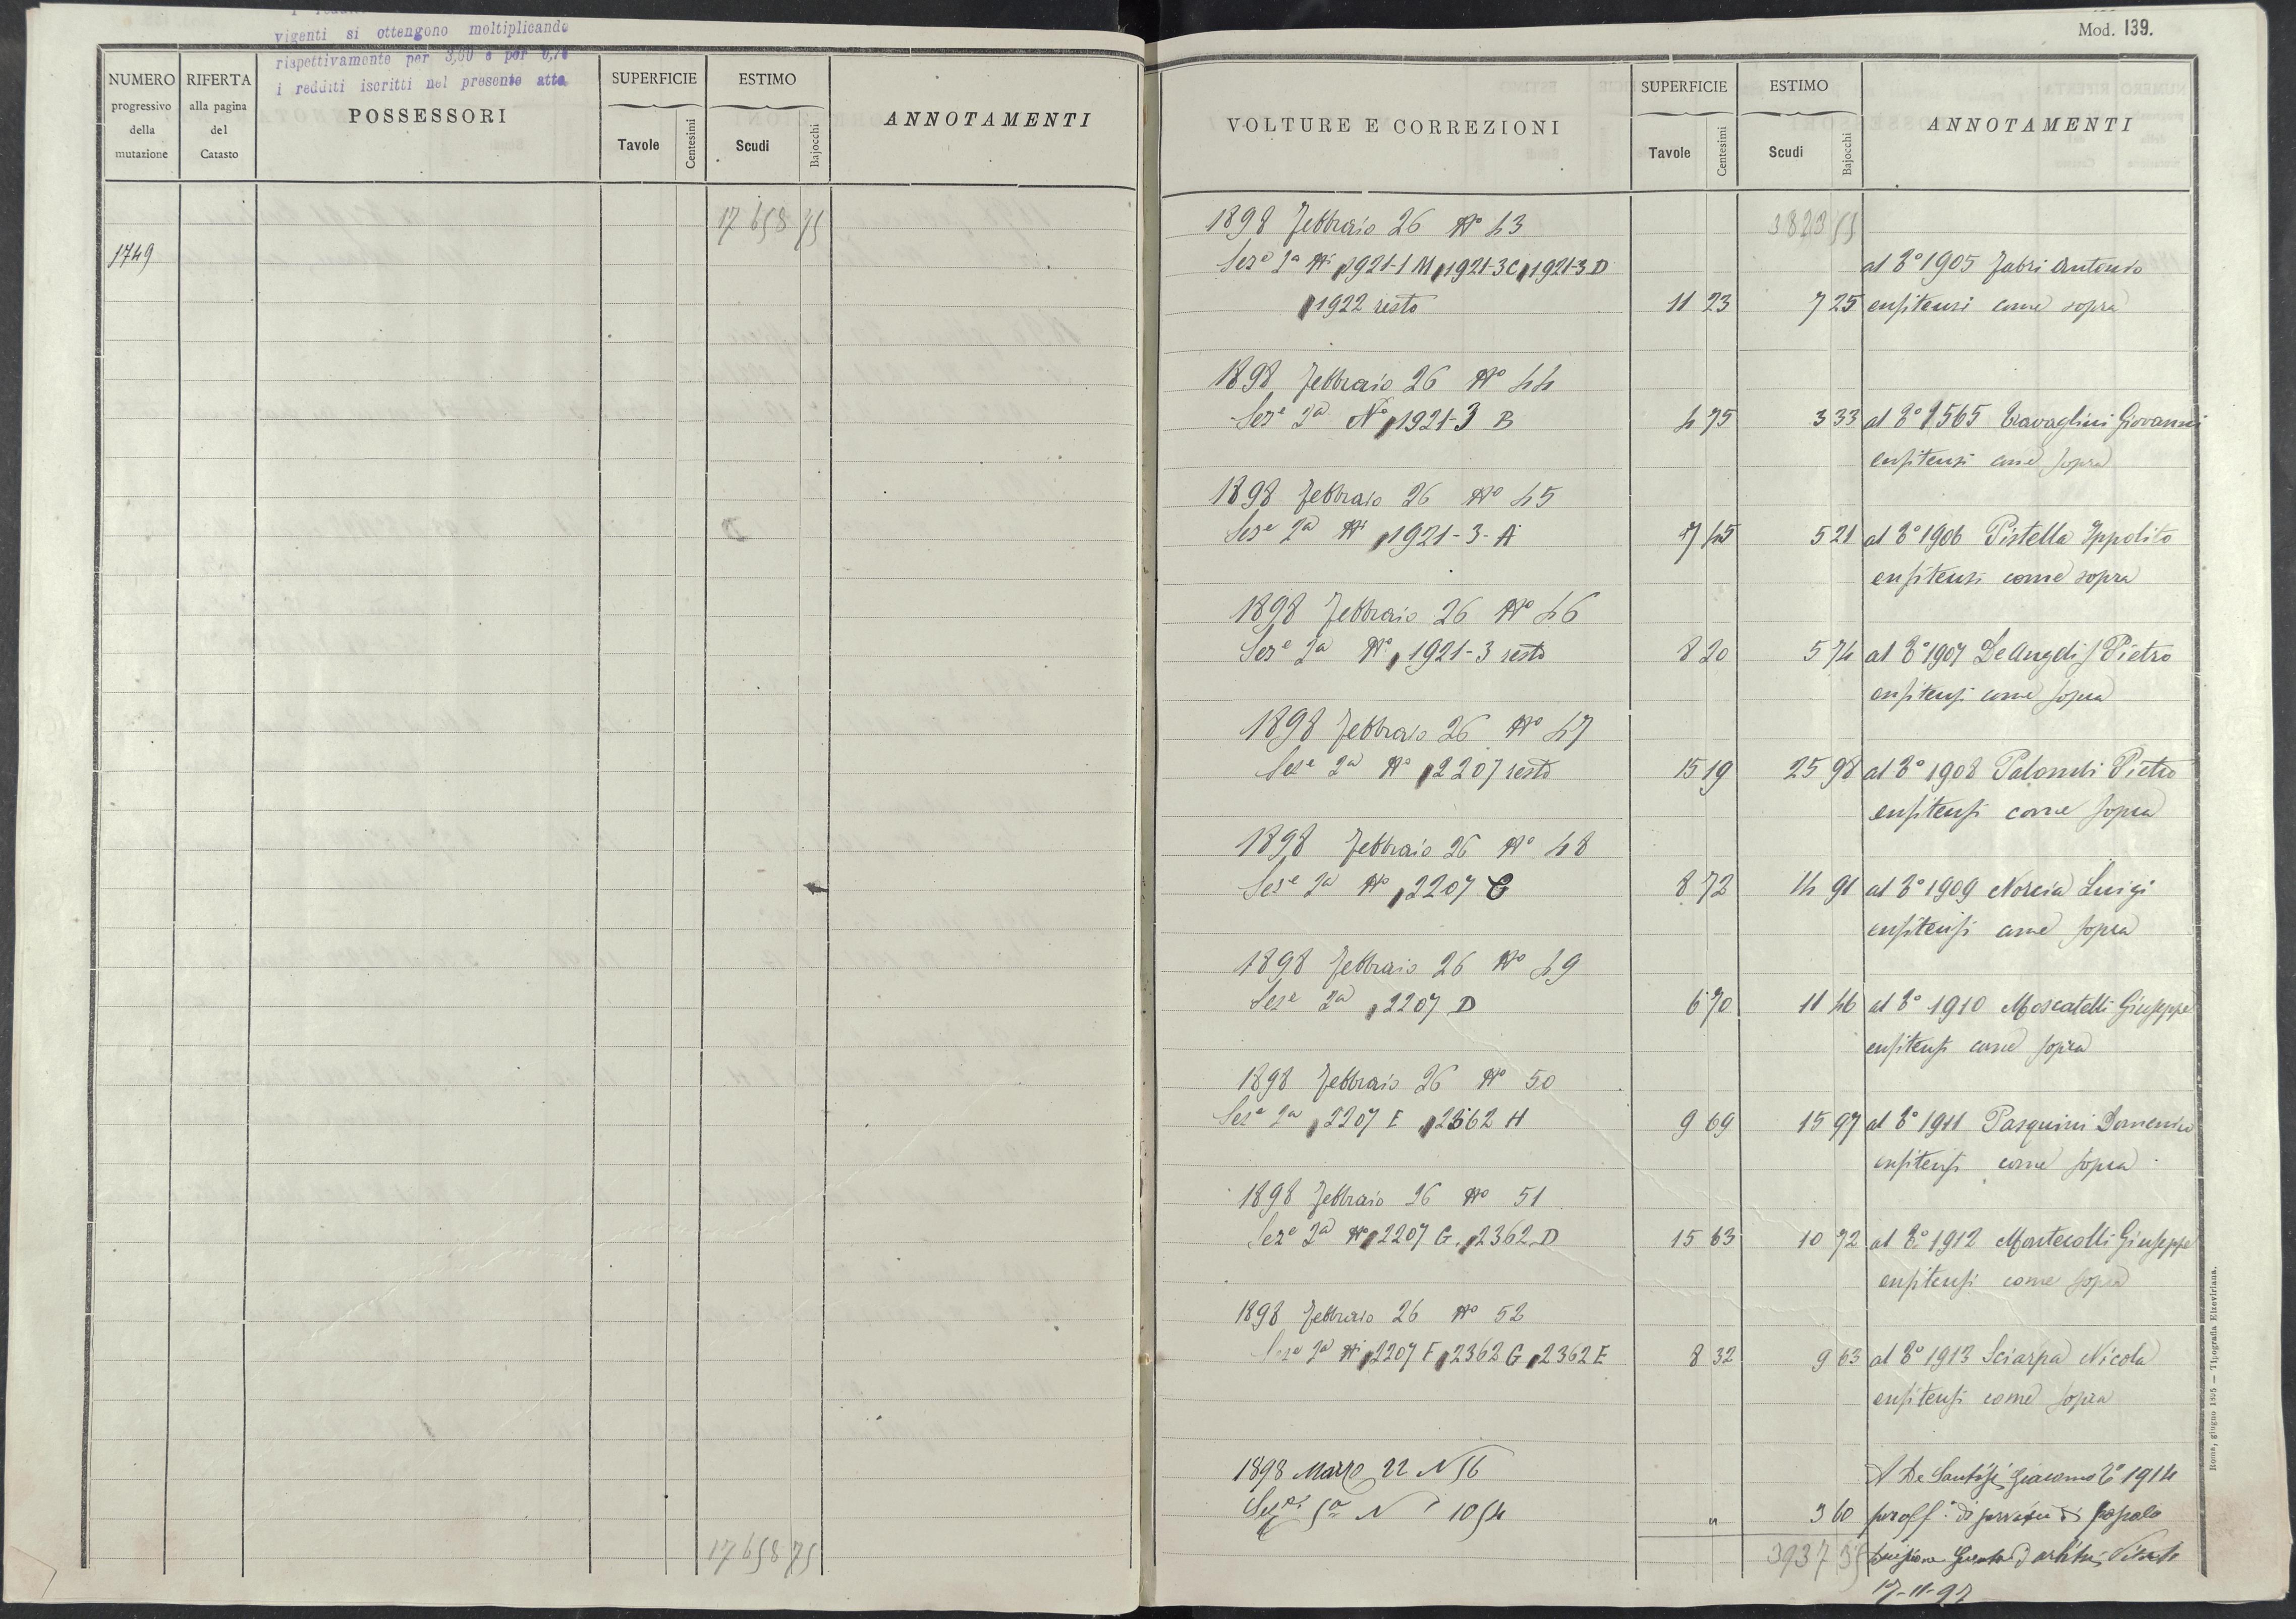 vigenti si ottengono moltiplicando
rispettivamente per 3,60 e per 0,70
i redditi iscritti nel presente atto
NUMERO progressivo della mutazione
RIFERTA alla pagina del Catasto
POSSESSORI
SUPERFICIE
Tavole Centesimi
ESTIMO
Scudi Bajocchi
ANNOTAMENTI
17658 75
1749
17658 75
Mod. 139.
VOLTURE E CORREZIONI
SUPERFICIE
Tavole Centesimi
ESTIMO
Scudi Bajocchi
ANNOTAMENTI
1898 Febbraio 26 No 43 3823 55
Seze 2a Ni 1921-1 M 1921-3C 1921-3D al To 1905 Fabri Antonio
1922 resto 11 23 7 25 enfiteusi come sopra
1898 Febbraio 26 No 44
Seze 2a No 1921-3 B 4 75 3 33 al To 1565 Travaglini Giovanni
enfiteusi come sopra
1898 Febbraio 26 No 45
Seze 2a Ni 1921-3-A 7 45 5 21 al To 1906 Pistella Ippolito
enfiteusi come sopra
1898 Febbraio 26 No 46
Seze 2a No 1921-3 resto 8 20 5 74 al To 1907 De Angelis Pietro
enfiteusi come sopra
1898 Febbraio 26 No 47
Seze 2a No 2207 resto 15 19 25 98 al To 1908 Palombi Pietro
enfiteusi come sopra
1898 Febbraio 26 No 48
Seze 2a No 2207 C 8 72 14 91 al To 1909 Norcia Luigi
enfiteusi come sopra
1898 Febbraio 26 No 49
Seze 2a 2207 D 6 70 11 46 al To 1910 Moscatelli Giuseppe
enfiteusi come sopra
1898 Febbraio 26 No 50
Seze 2a 2207 E 2362 H 9 69 15 97 al To 1911 Pasquini Domenico
enfiteusi come sopra
1898 Febbraio 26 No 51
Seze 2a No 2207 G. 2362 D 15 63 10 72 al To 1912 Montecolli Giuseppe
enfiteusi come sopra
1898 Febbraio 26 No 52
Seze 2a Ni 2207 F 2362 G 2362 E 8 32 9 63 al To 1913 Sciarpa Nicola
enfiteusi come sopra
1898 Marzo 22 N 56 A De Santis Giacomo To 1914
5a N 1054 " 3 60 per aff. di di popolo
3937 55
17-11-97
Roma, giugno 1895 — Tipografia Elzeviriana.